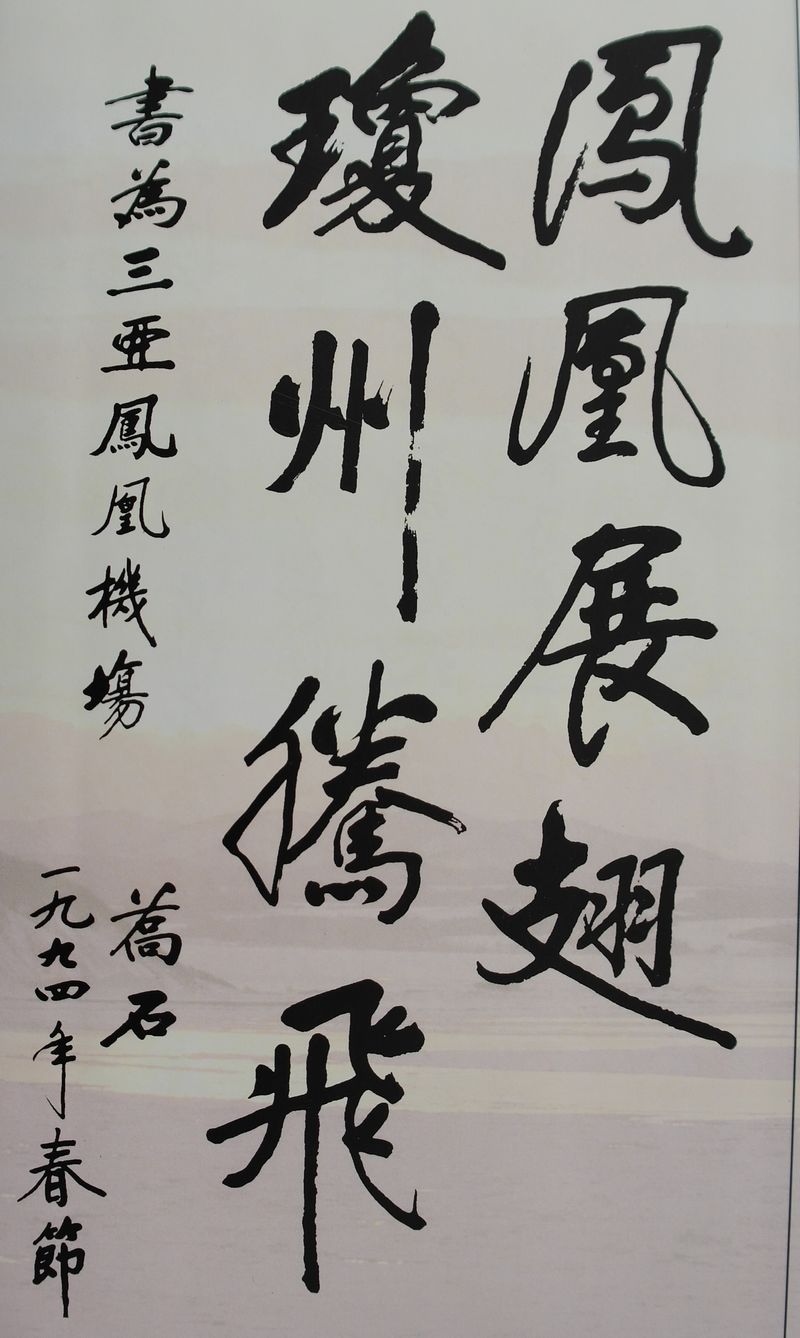 鳳凰展翅
瓊州騰飛
書為三亜鳳凰機場
喬石
一九九四年春節